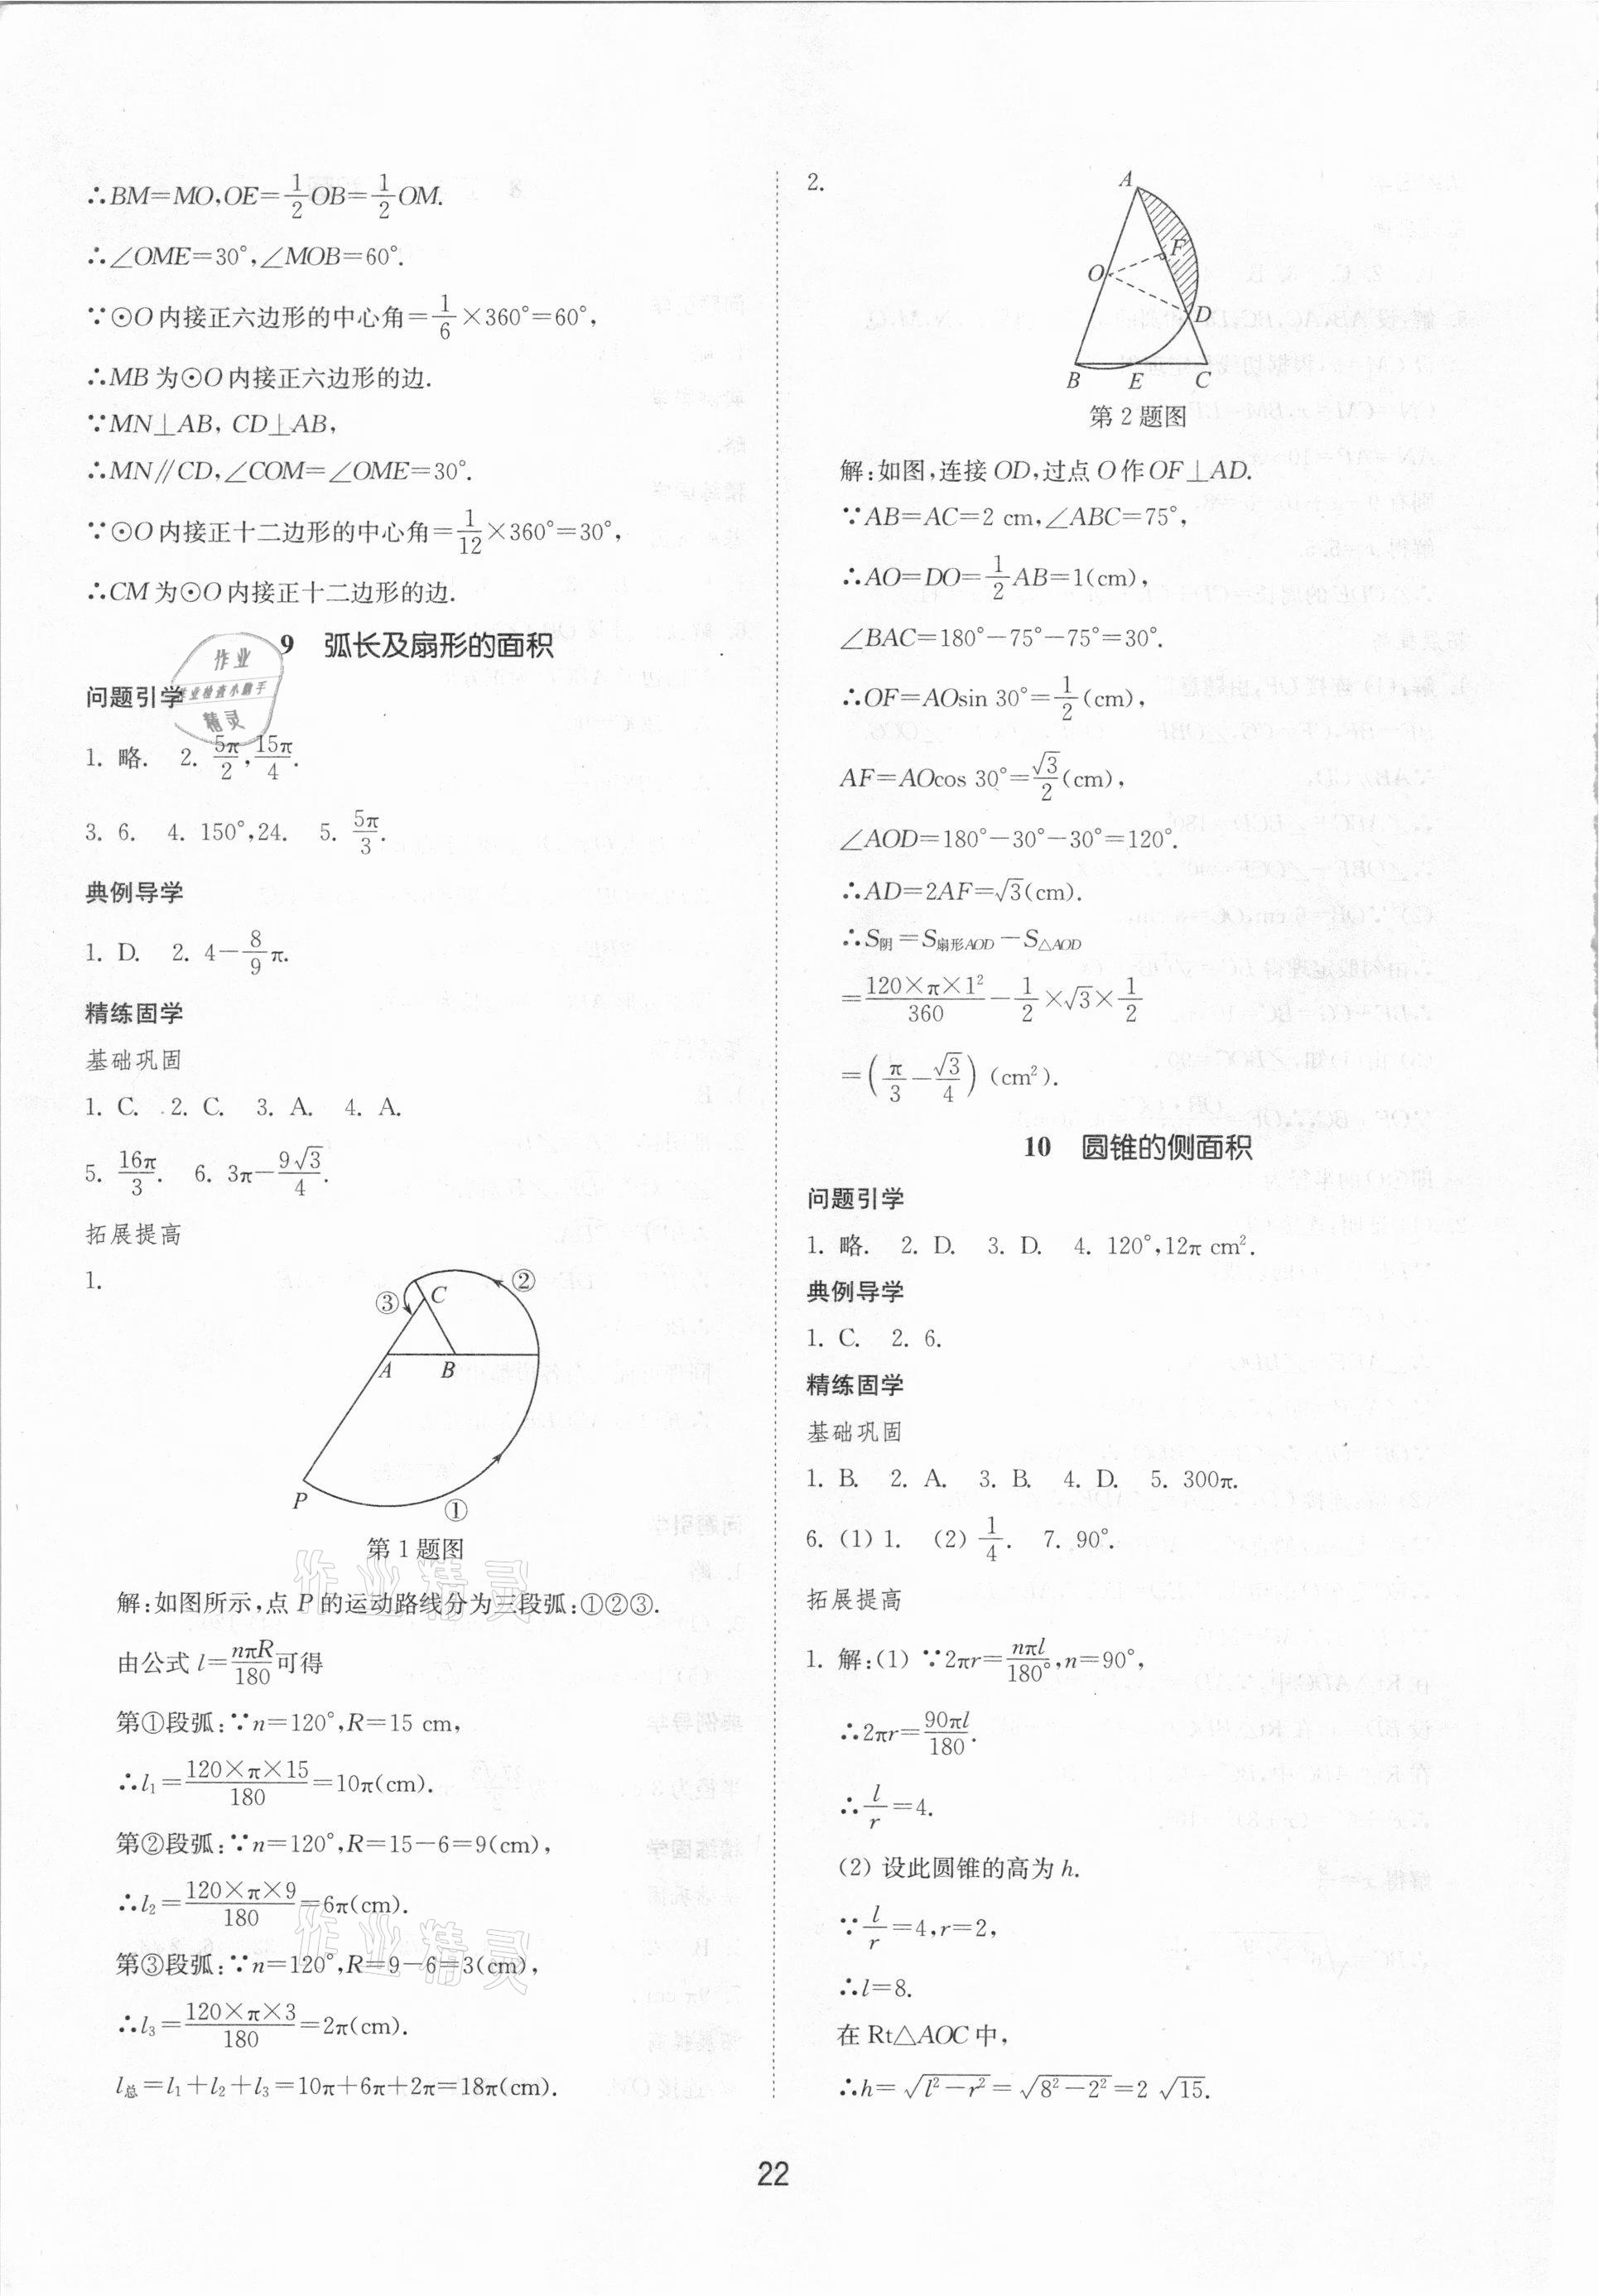 ∴BM=MO,OE=1/2OB=1/2OM.
∴∠OME=30°,∠MOB=60°.
∵⊙O内接正六边形的中心角=1/6×360°=60°,
∴MB为⊙O内接正六边形的边.
∵MN⊥AB, CD⊥AB,
∴MN∥CD,∠COM=∠OME=30°.
∵⊙O内接正十二边形的中心角=1/12×360°=30°,
∴CM为⊙O内接正十二边形的边.
9 弧长及扇形的面积
作业
作业检查小助手
精灵
问题引学
1. 略. 2. 5π/2,15π/4.
3. 6. 4. 150°,24. 5. 5π/3.
典例导学
1. D. 2. 4-8/9π.
精练固学
基础巩固
1. C. 2. C. 3. A. 4. A.
5. 16π/3. 6. 3π-9√3/4.
拓展提高
1.
②
③ C
A B
P
①
第1题图
作业精灵
解:如图所示,点P的运动路线分为三段弧:①②③.
由公式l=nπR/180可得
第①段弧:∵n=120°,R=15 cm,
∴l₁=120×π×15/180=10π(cm).
第②段弧:∵n=120°,R=15-6=9(cm),
∴l₂=120×π×9/180=6π(cm).
作业精灵
第③段弧:∵n=120°,R=9-6=3(cm),
∴l₃=120×π×3/180=2π(cm).
l总=l₁+l₂+l₃=10π+6π+2π=18π(cm).
2.
A
F
O
D
B E C
第2题图
解:如图,连接OD,过点O作OF⊥AD.
∵AB=AC=2 cm,∠ABC=75°,
∴AO=DO=1/2AB=1(cm),
∠BAC=180°-75°-75°=30°.
∴OF=AOsin 30°=1/2(cm),
AF=AOcos 30°=√3/2(cm),
∠AOD=180°-30°-30°=120°.
∴AD=2AF=√3(cm).
∴S阴=S扇形AOD-S△AOD
=120×π×1²/360-1/2×√3×1/2
=(π/3-√3/4) (cm²).
10 圆锥的侧面积
问题引学
1. 略. 2. D. 3. D. 4. 120°,12π cm².
典例导学
1. C. 2. 6.
精练固学
基础巩固
1. B. 2. A. 3. B. 4. D. 5. 300π.
6. (1) 1. (2) 1/4. 7. 90°.
拓展提高
1. 解:(1) ∵2πr=nπl/180°,n=90°,
∴2πr=90πl/180.
∴l/r=4.
(2) 设此圆锥的高为h.
∵l/r=4,r=2,
∴l=8.
在Rt△AOC中,
∴h=√(l²-r²)=√(8²-2²)=2√15.
22